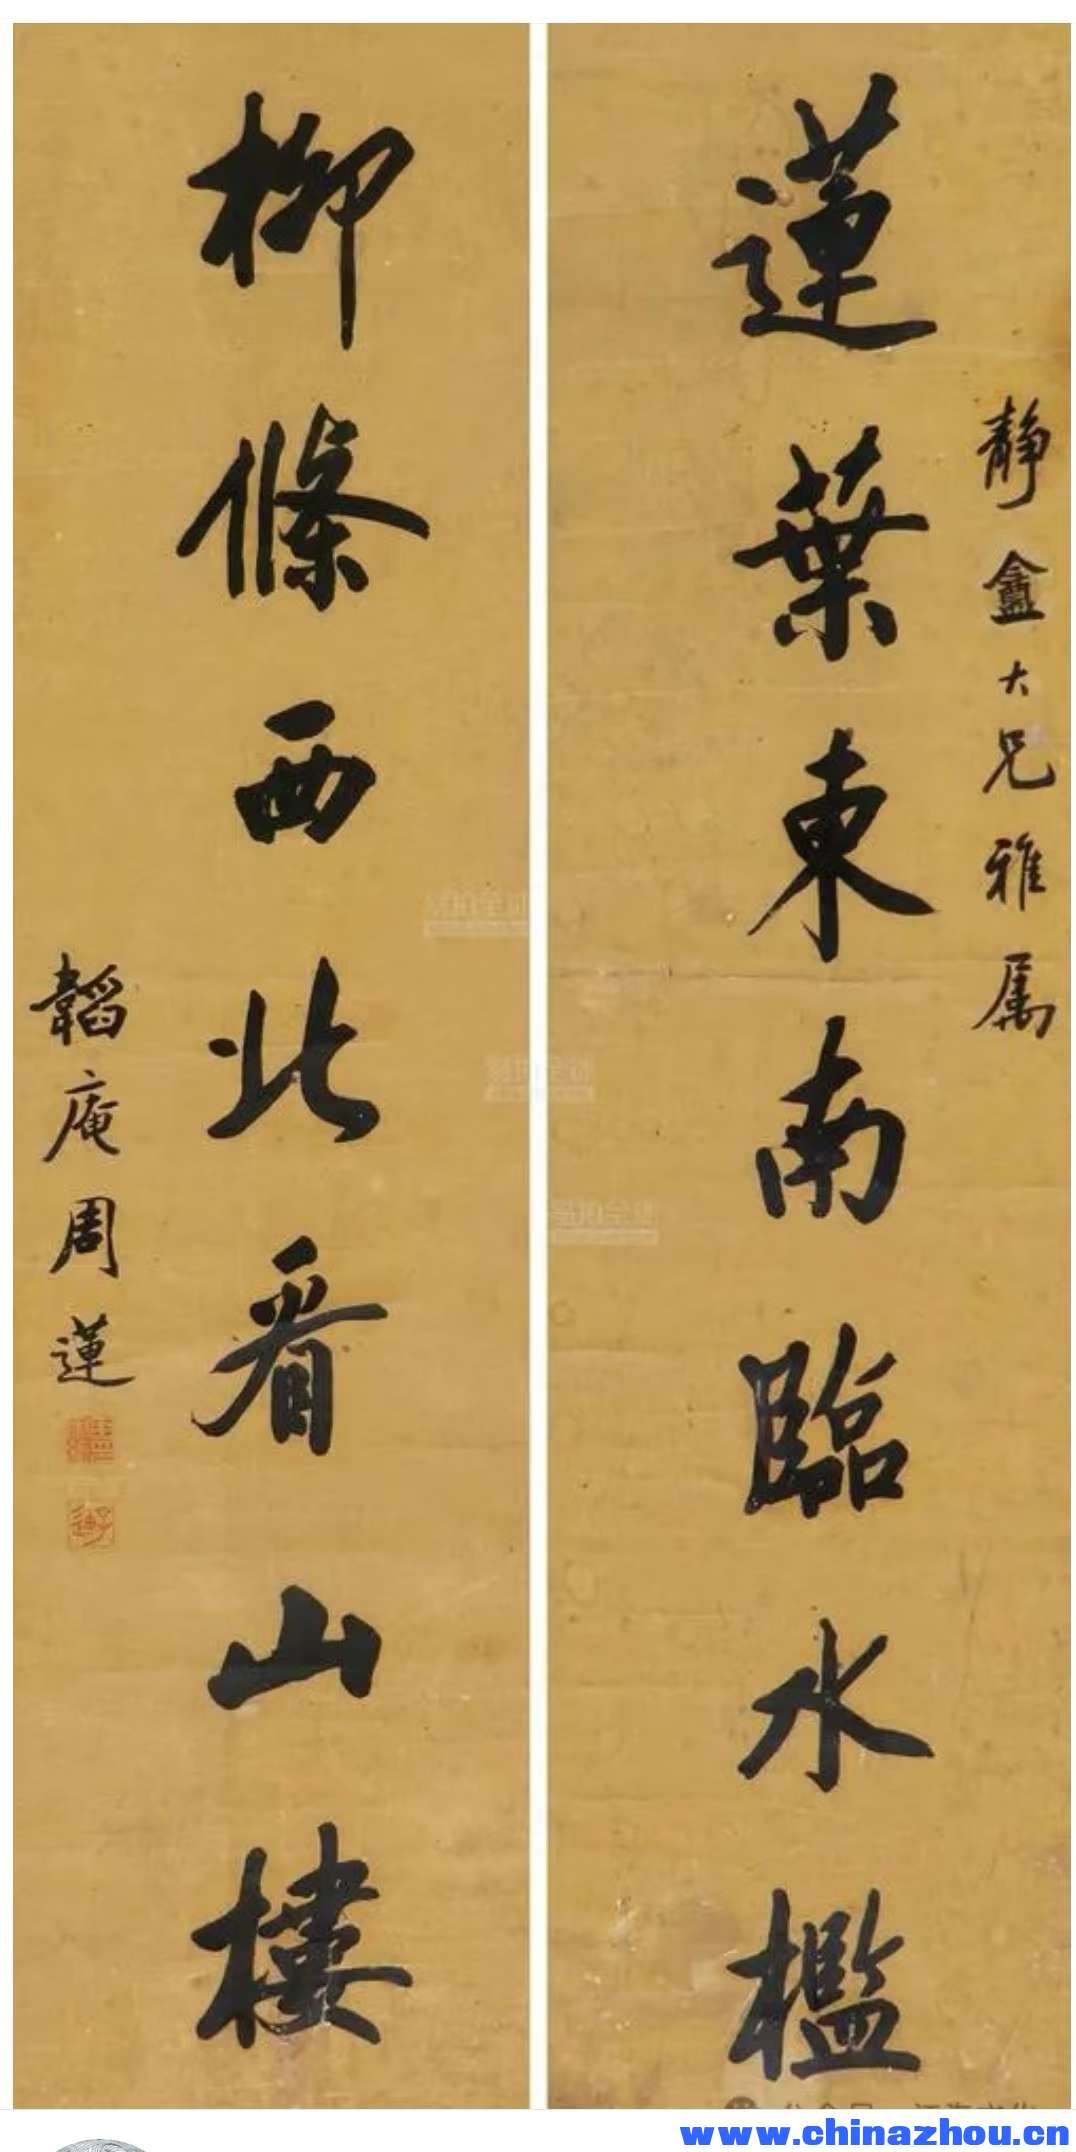 靜盦大兄雅屬
蓮葉東南臨水檻
柳條西北看山樓
韜庵周蓮
www.chinazhou.cn